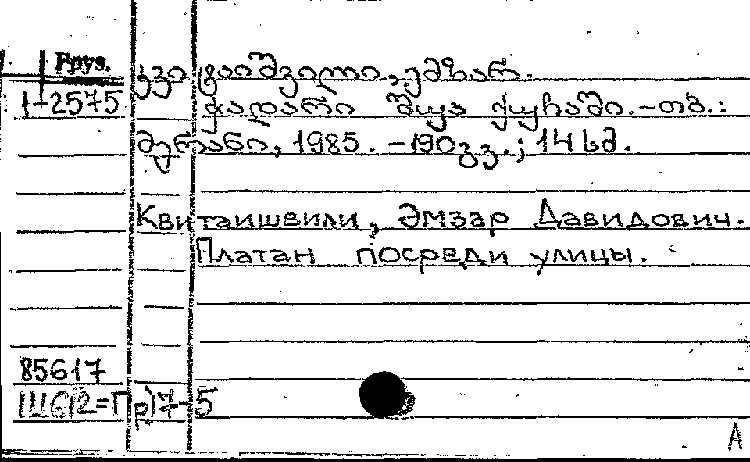 Груз.
კვიტაიშვილი, ემზარ.
1-2575 ჭადარი შუა ქუჩაში. - თბ.:
მერანი, 1985. - 190გვ.; 14სმ.
Квитаишвили, Эмзар Давидович.
Платан посреди улицы.
85617
17-5
А